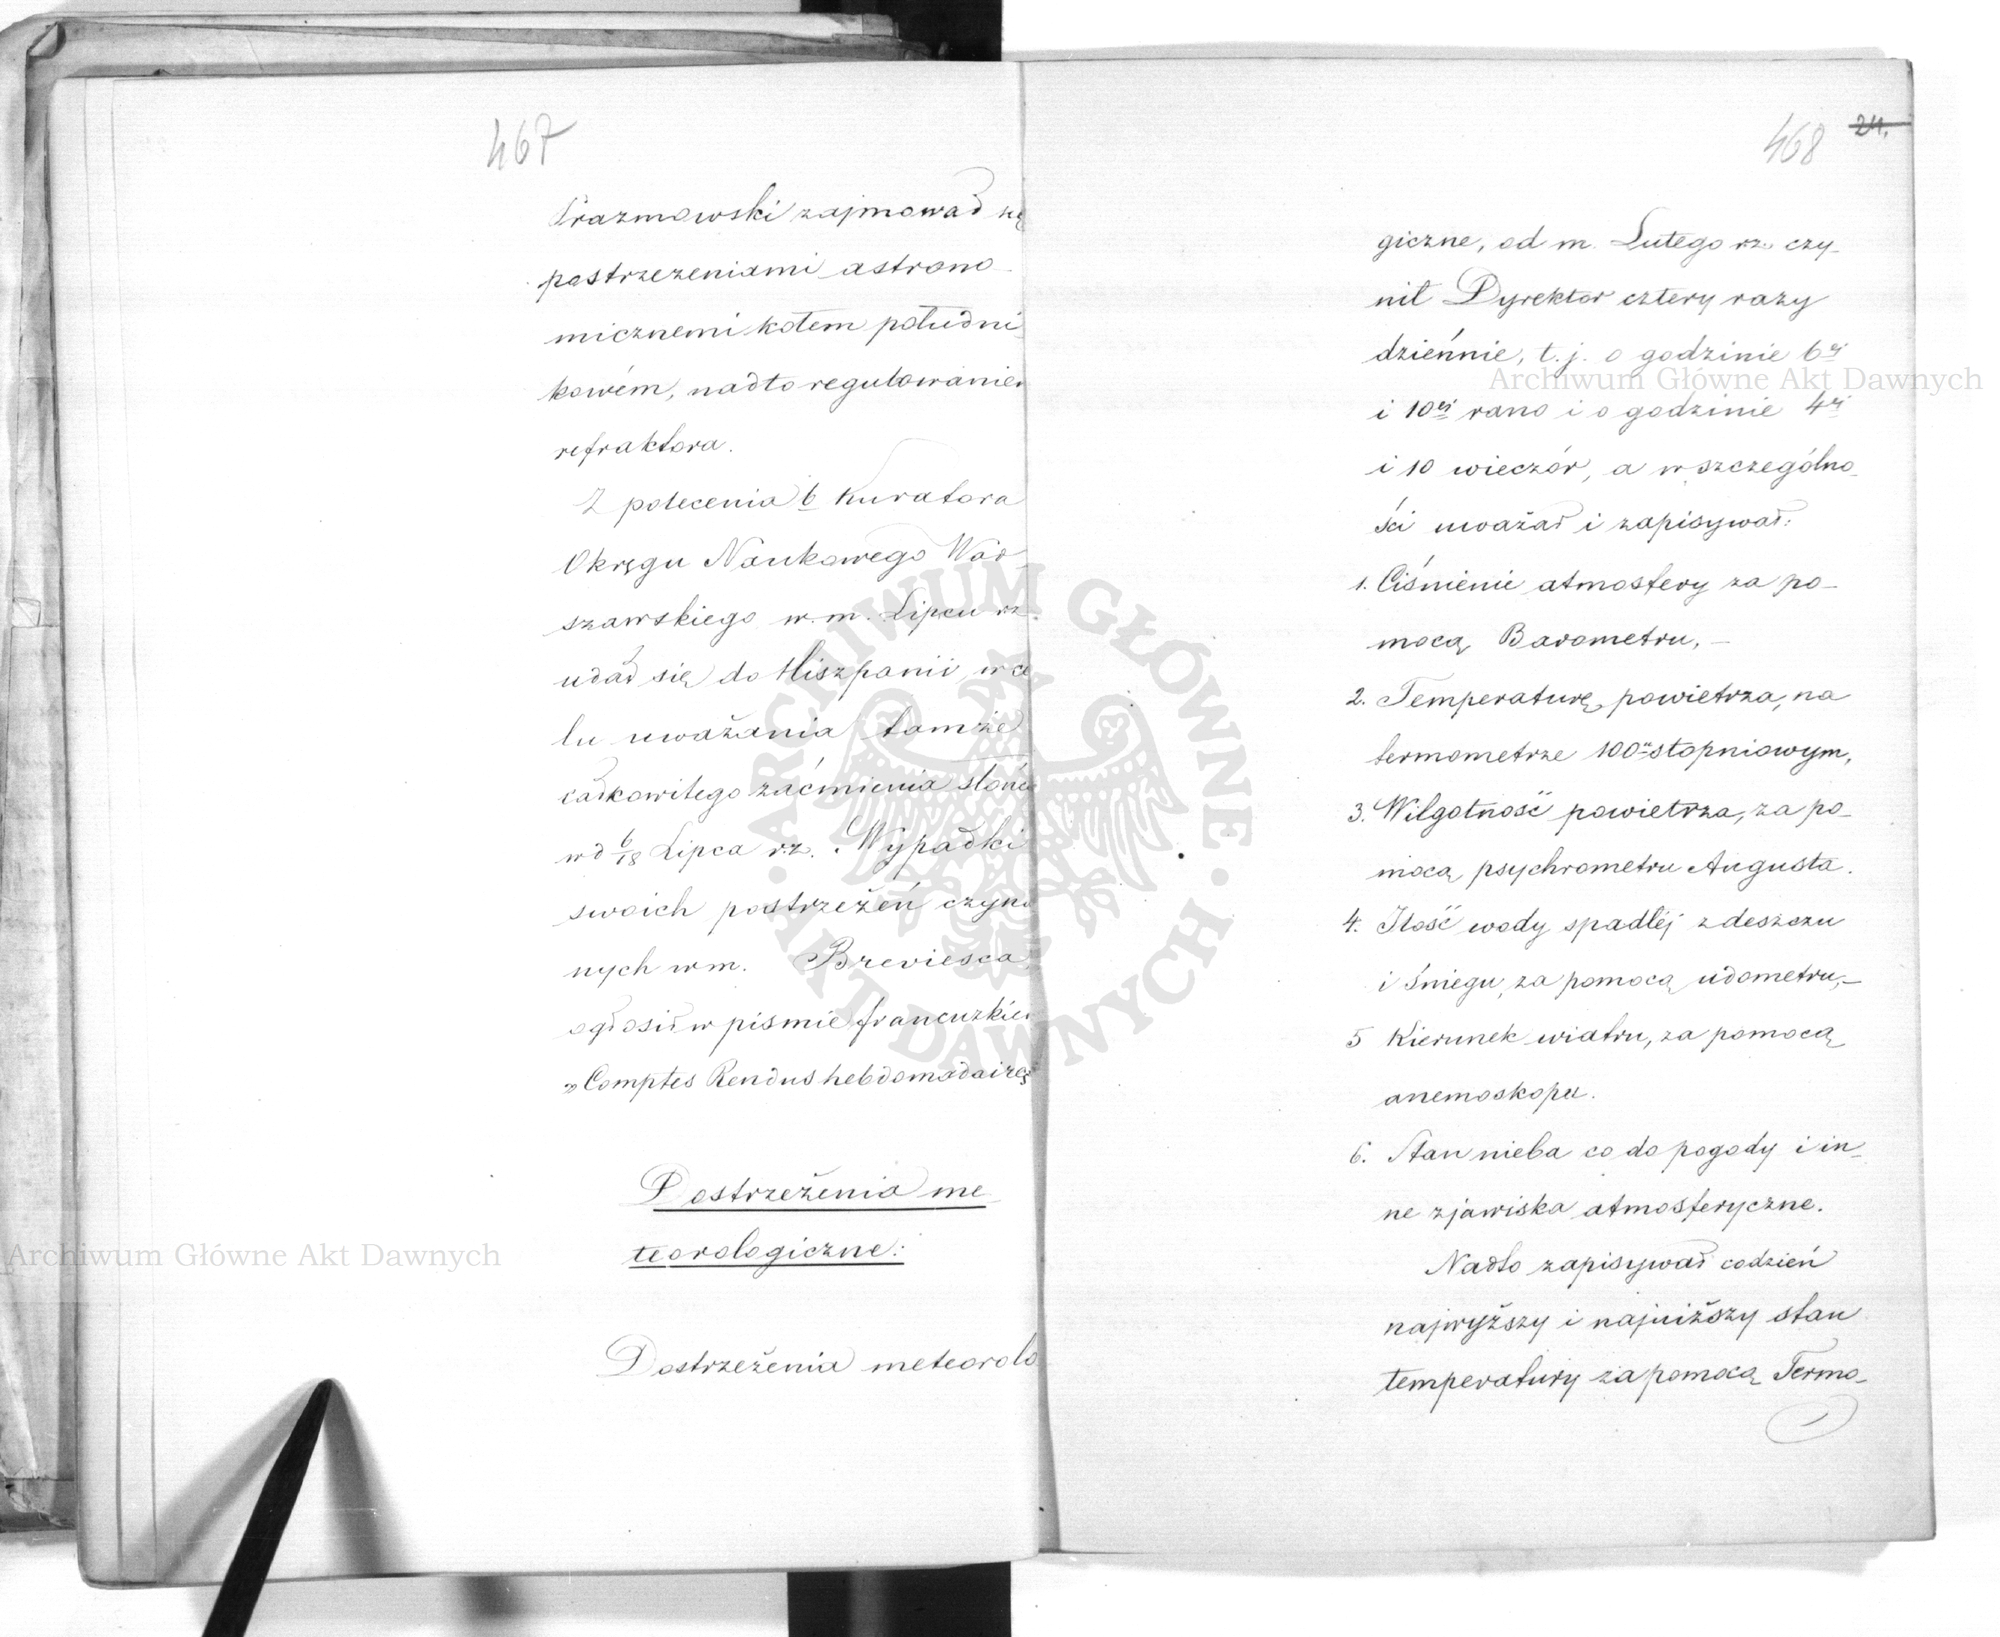 467
Prazmowski zajmował się
postrzezeniami astrono-
micznemi kołem południ-
kowém, nadto regulowaniem
refraktora.
Z polecenia b Kuratora
Okręgu Naukowego War-
szawskiego w m. Lipcu rz.
udał się do Hiszpanii, w ce
lu uważania tamże
całkowitego zaćmienia słońca
w d 6/18 Lipca rz. Wypadki
swoich postrzeżeń czynio
nych w m. Breviesca,
ogłosił w piśmie francuzkiem
„Comptes Rendus hebdomadaires"
Postrzeżenia me
teorologiczne:
Dostrzeżenia meteorolo
468 24.
giczne, od m. Lutego rz. czy-
nił Dyrektor cztery razy
dziénnie, t. j. o godzinie 6ej
i 10ej rano i o godzinie 4ej
i 10 wieczór, a w szczególno-
ści uważał i zapisywał:
1. Ciśnienie atmosfery za po-
mocą Barometru, —
2. Temperaturę powietrza, na
termometrze 100u stopniowym,
3. Wilgotność powietrza, za po-
mocą psychrometru Augusta.
4. Ilość wody spadłéj z deszczu
i śniegu, za pomocą udometru, —
5 Kierunek wiatru, za pomocą
anemoskopu.
6. Stan nieba co do pogody i in-
ne zjawiska atmosferyczne.
Nadto zapisywał codzień
najwyższy i najniższy stan
temperatury za pomocą Termo-
Archiwum Główne Akt Dawnych
Archiwum Główne Akt Dawnych
ARCHIWUM GŁÓWNE · AKT DAWNYCH ·